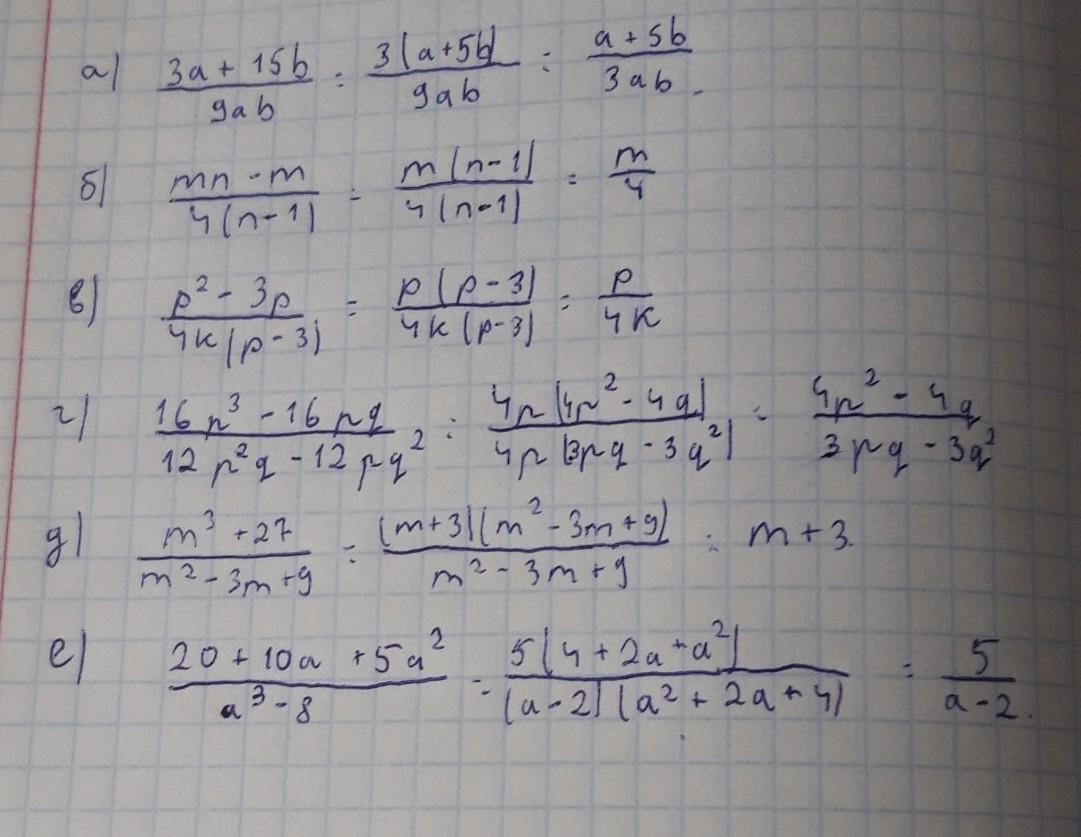 а) (3a + 15b)/(9ab) = (3(a+5b))/(9ab) = (a+5b)/(3ab).
б) (mn - m)/(4(n-1)) = (m(n-1))/(4(n-1)) = m/4
в) (p² - 3p)/(4k(p-3)) = (p(p-3))/(4k(p-3)) = p/(4k)
г) (16p³ - 16pq)/(12p²q - 12pq²) = (4p(4p² - 4q))/(4p(3pq - 3q²)) = (4p² - 4q)/(3pq - 3q²)
д) (m³ + 27)/(m² - 3m + 9) = ((m+3)(m² - 3m + 9))/(m² - 3m + 9) = m + 3.
е) (20 + 10a + 5a²)/(a³ - 8) = (5(4 + 2a + a²))/((a-2)(a² + 2a + 4)) = 5/(a-2).